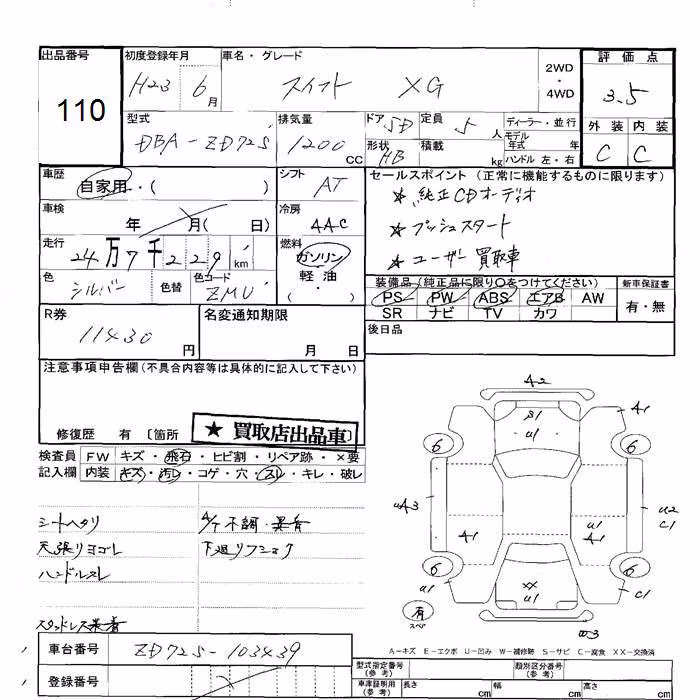 出品番号
110
初度登録年月
H23 6月
車名・グレード
スイフト XG
2WD・4WD
評価点
3.5
外装 内装
C C
型式
DBA-ZD72S
排気量
1200cc
ドア 5D
形状 HB
定員 5人
積載 kg
ディーラー・並行
モデル年式 年
ハンドル 左・右
車歴
自家用・( )
シフト
AT
セールスポイント (正常に機能するものに限ります)
★ 純正CDオーディオ
★ プッシュスタート
★ ユーザー買取車
車検
年 月( 日)
冷房
AAC
走行
24万7千229km
燃料
ガソリン
軽油
( ・ )
色
シルバー
色替
色コード
ZMU
装備品(純正品に限り○をつけてください)
PS PW ABS エアB AW
SR ナビ TV カワ
新車保証書
有・無
R券
11430円
名変通知期限
月 日
後日品
注意事項申告欄(不具合内容等は具体的に記入して下さい)
修復歴 有 〔箇所
★買取店出品車
検査員記入欄
FW キズ・飛石・ヒビ割・リペア跡・×要
内装 キズ・汚レ・コゲ・穴・スレ・キレ・破レ
シートヘタリ
A/T不調・異音
天張リヨゴレ
下廻リフショク
ハンドルスレ
スタッドレス
車台番号
ZD72S-103439
登録番号
A2
A1
S1
U1
6
6
UA3
A1
U1
A1
U2
C1
6
6
XX
U1
C1
W3
有
スペア
A-キズ E-エクボ U-凹み W-補修跡 S-サビ C-腐食 XX-交換済
型式指定番号(参考)
類別区分番号(参考)
車庫証明用(参考)
長さ cm
幅 cm
高さ cm